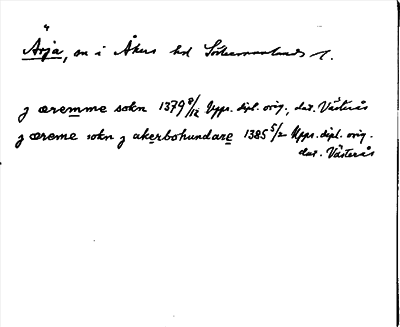 Ärja, sn i Åkers hd Södermanlands l.
j æremme sokn 1379 8/12 Upps. dipl. orig., dat. Västerås
j æreme sokn j akerbohundare 1385 5/2 Upps. dipl. orig.
dat. Västerås